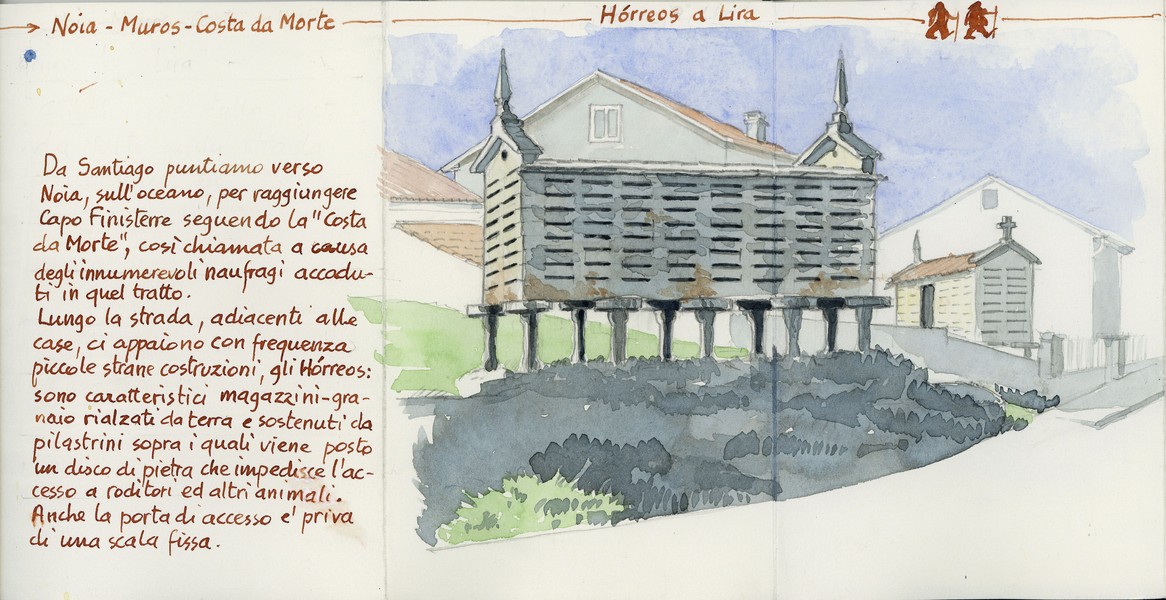 Noia - Muros - Costa da Morte
Hórreos a Lira
Da Santiago puntiamo verso
Noia, sull'oceano, per raggiungere
Capo Finisterre seguendo la "Costa
da Morte", così chiamata a causa
degli innumerevoli naufragi accadu-
ti in quel tratto.
Lungo la strada, adiacenti alle
case, ci appaiono con frequenza
piccole strane costruzioni, gli Hórreos:
sono caratteristici magazzini-gra-
naio rialzati da terra e sostenuti da
pilastrini sopra i quali viene posto
un disco di pietra che impedisce l'ac-
cesso a roditori ed altri animali.
Anche la porta di accesso e' priva
di una scala fissa.